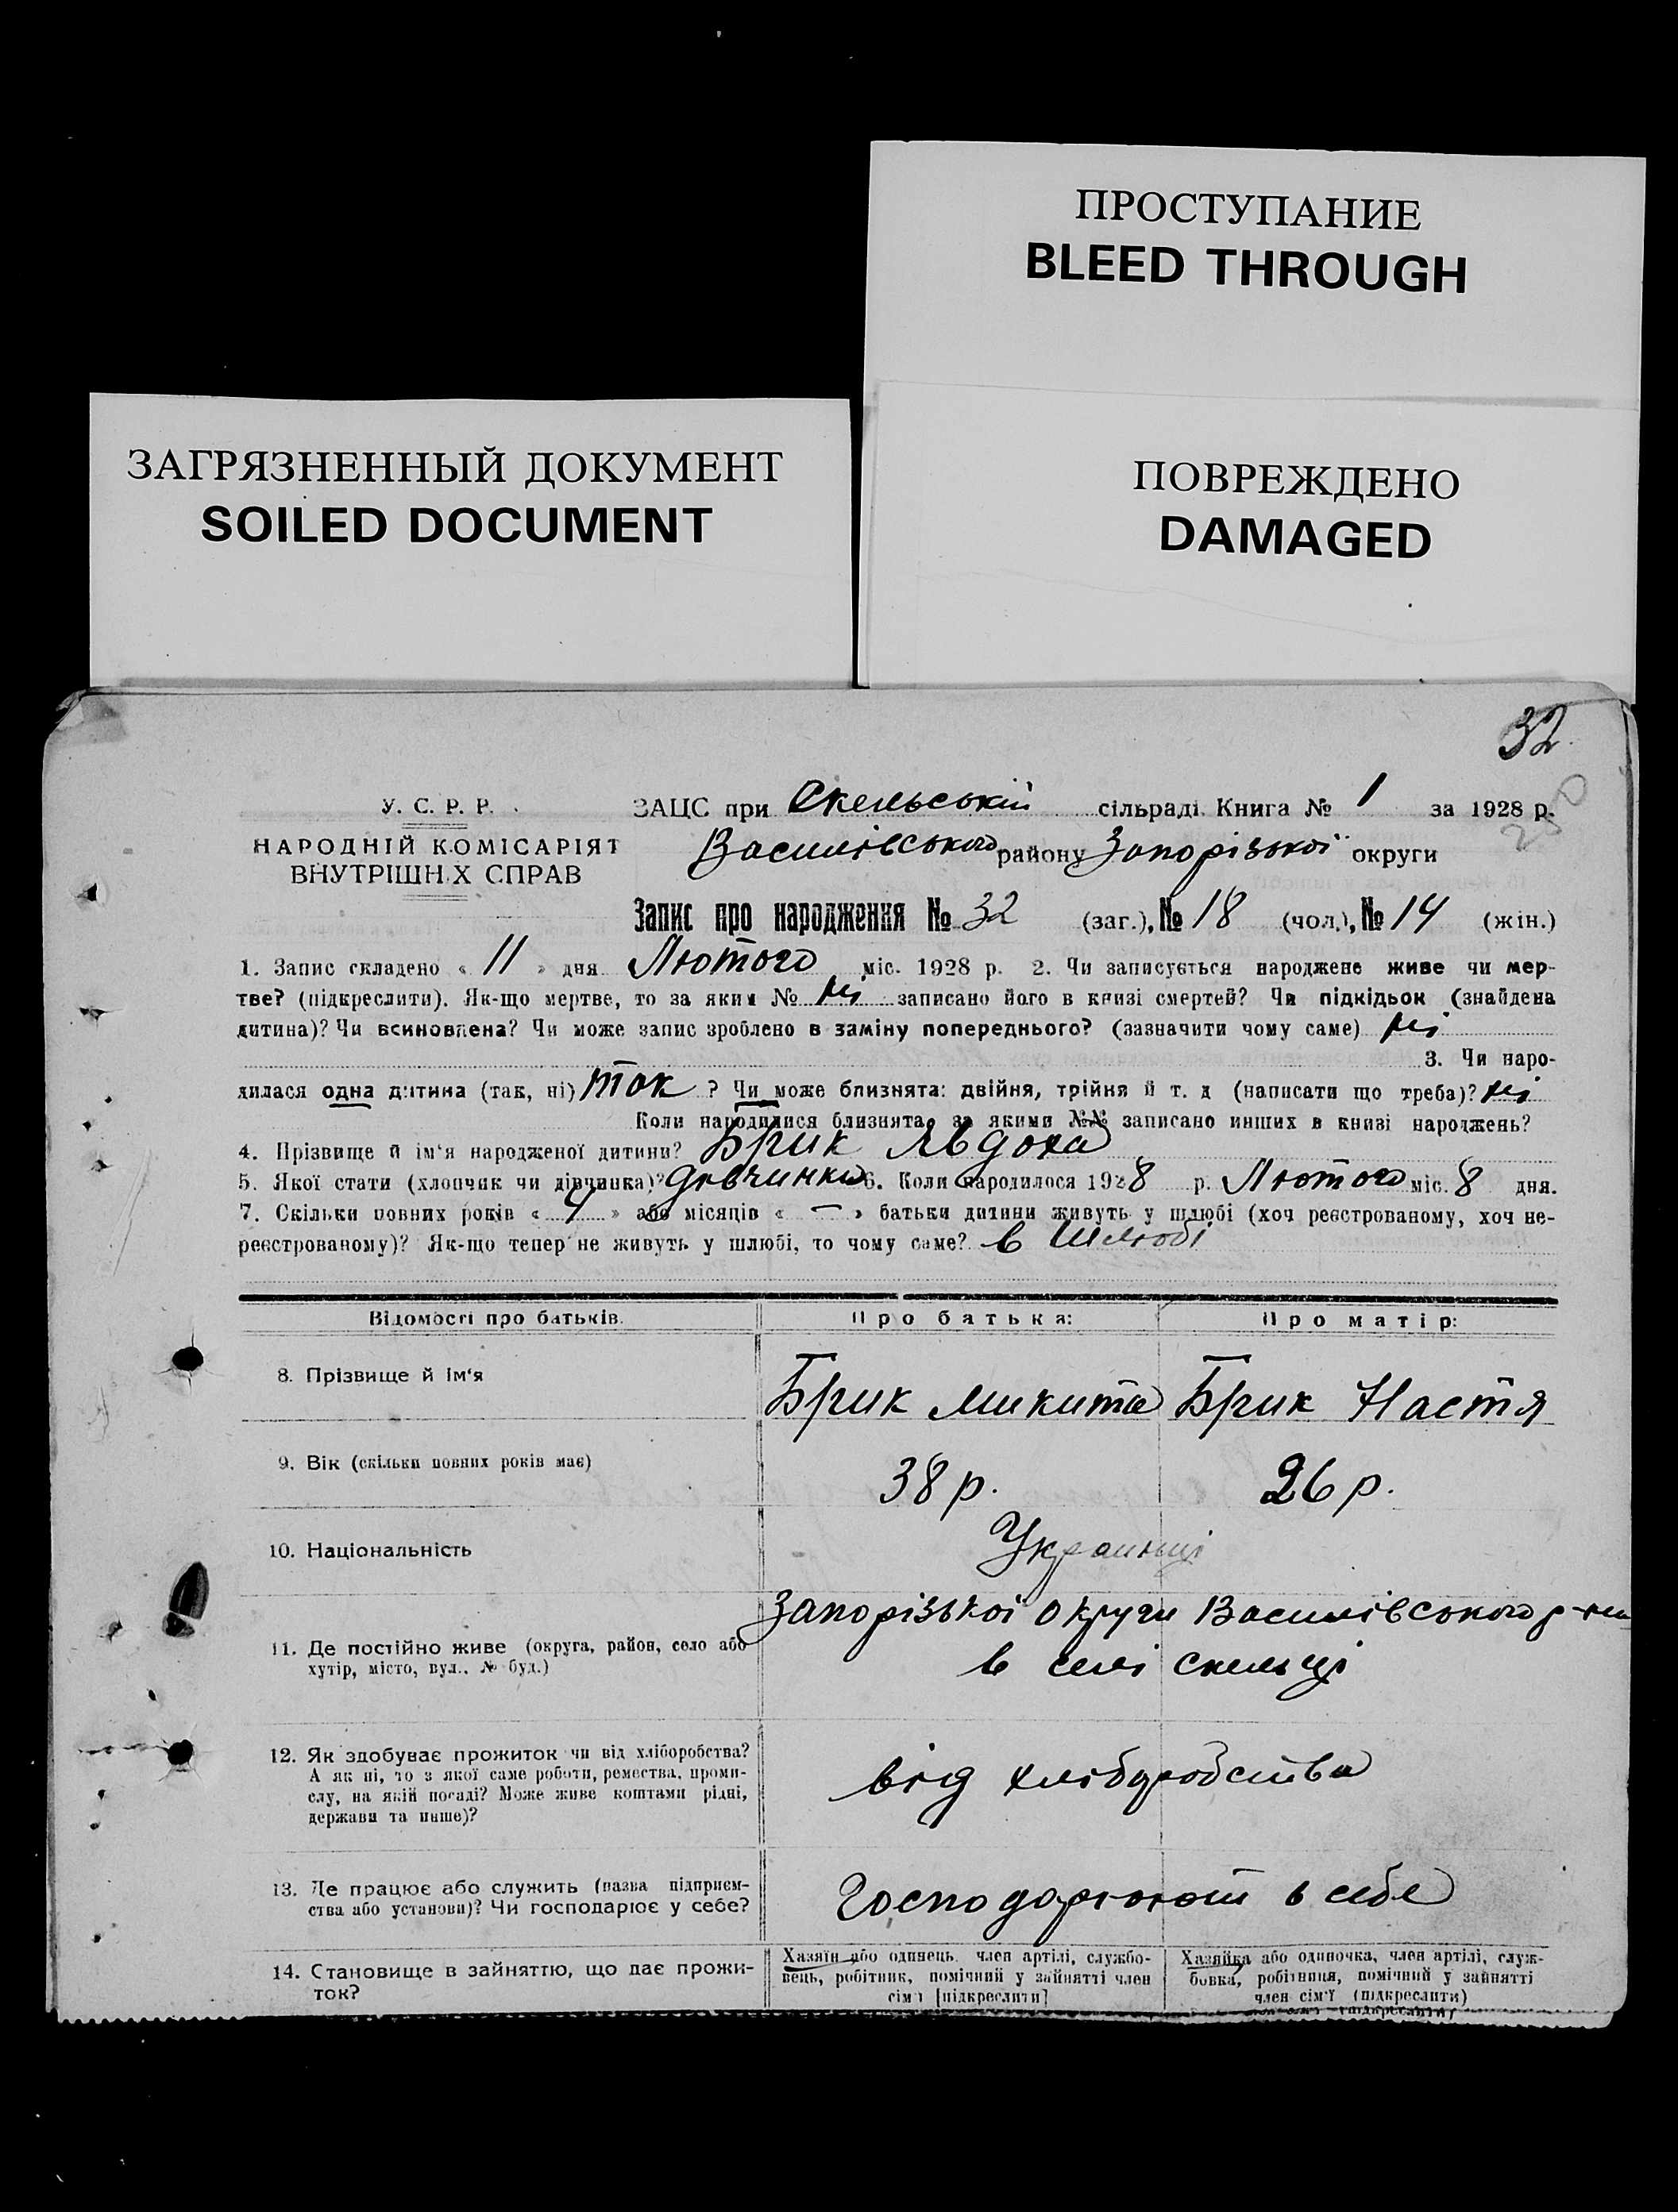 ПРОСТУПАНИЕ
BLEED THROUGH
ЗАГРЯЗНЕННЫЙ ДОКУМЕНТ
SOILED DOCUMENT
ПОВРЕЖДЕНО
DAMAGED
32
У. С. Р. Р.
НАРОДНІЙ КОМІСАРІЯТ
ВНУТРІШНІХ СПРАВ
ЗАЦС при Скельській сільраді Книга № 1 за 1928 р.
Василівського району Запорізької округи
Запис про народження № 32 (заг.), № 18 (чол.), № 14 (жін.)
1. Запис складено « 11 » дня Лютого міс. 1928 р. 2. Чи записується народжене живе чи мер-
тве? (підкреслити). Як-що мертве, то за яким № ні записано його в книзі смертей? Чи підкідьок (знайдена
дитина)? Чи всиновлена? Чи може запис зроблено в заміну попереднього? (зазначити чому саме) ні
3. Чи наро-
дилася одна дитина (так, ні) так ? Чи може близнята: двійня, трійня й т. д (написати що треба)? ні
Коли народилися близнята, за якими №№ записано инших в книзі народжень?
4. Прізвище й ім'я народженої дитини? Брик Явдоха
5. Якої стати (хлопчик чи дівчинка)? дівчинка 6. Коли народилося 1928 р. Лютого міс. 8 дня.
7. Скільки повних років « 4 » або місяців « — » батьки дитини живуть у шлюбі (хоч реєстрованому, хоч не-
реєстрованому)? Як-що тепер не живуть у шлюбі, то чому саме? в Шлюбі
Відомості про батьків. Про батька: Про матір:
8. Прізвище й ім'я Брик Микита Брик Настя
9. Вік (скільки повних років має) 38 р. 26 р.
10. Національність Украинці
Запорізької округи Василівського р-ну
11. Де постійно живе (округа, район, село або
хутір, місто, вул., № буд.) в селі Скельці
12. Як здобуває прожиток чи від хліборобства?
А як ні, то з якої саме роботи, ремества, проми-
слу, на якій посаді? Може живе коштами рідні,
держави та инше)?
від хліборобства
13. Де працює або служить (назва підприєм-
ства або установи)? Чи господарює у себе?
Господарюют в себе
14. Становище в зайняттю, що дає прожи-
ток?
Хазяїн або одинець, член артілі, службо-
вець, робітник, помічний у зайнятті член
сім'ї [підкреслити]
Хазяйка або одиночка, член артілі, служ-
бовка, робітниця, помічний у зайнятті
член сім'ї (підкреслити)